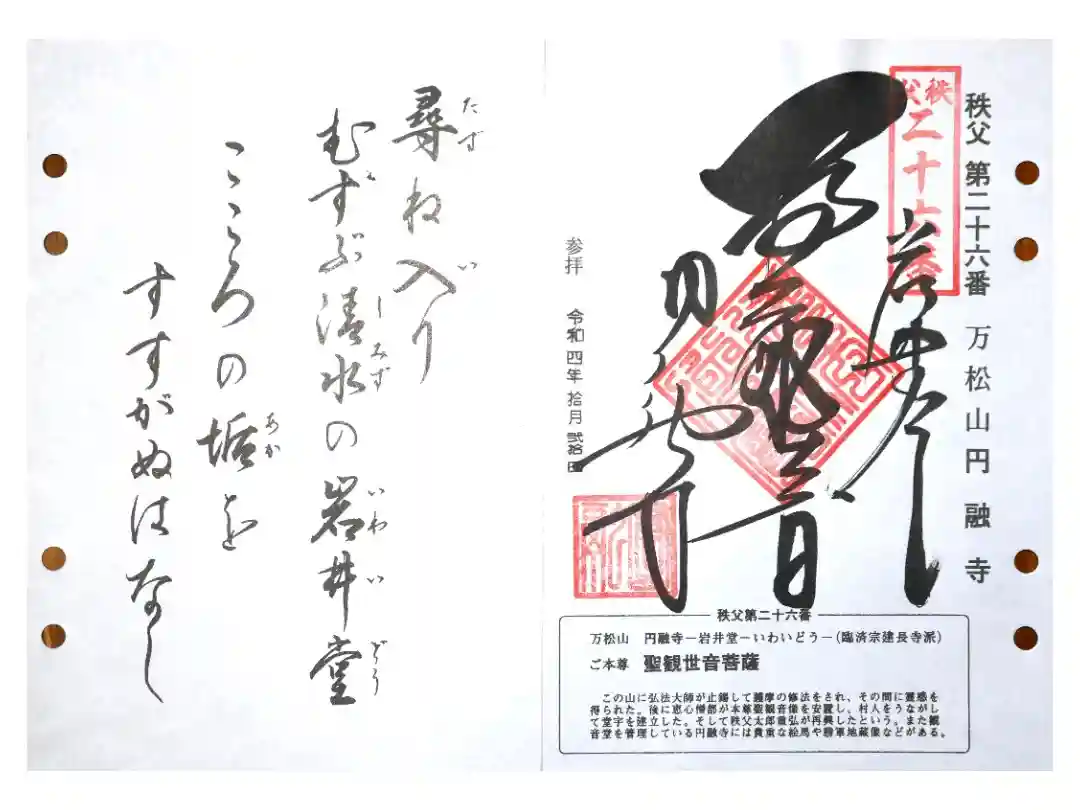 秩父 第二十六番 万松山円融寺
秩父二十六番
岩井堂
円融寺
参拝 令和四年 拾月
秩父第二十六番
万松山 円融寺－岩井堂－いわいどう－(臨済宗建長寺派)
ご本尊 聖観世音菩薩
この山に弘法大師が止錫して護摩の修法をされ、その間に霊感を
得られた。後に恵心僧都が本尊聖観音像を安置し、村人をうながし
て堂宇を建立した。そして秩父太郎重弘が再興したという。また観
音堂を管理している円融寺には貴重な絵馬や勝軍地蔵像などがある。
たず い
尋ね入り
しみず いわいどう
むすぶ清水の岩井堂
あか
こころの垢を
すすがぬはなし